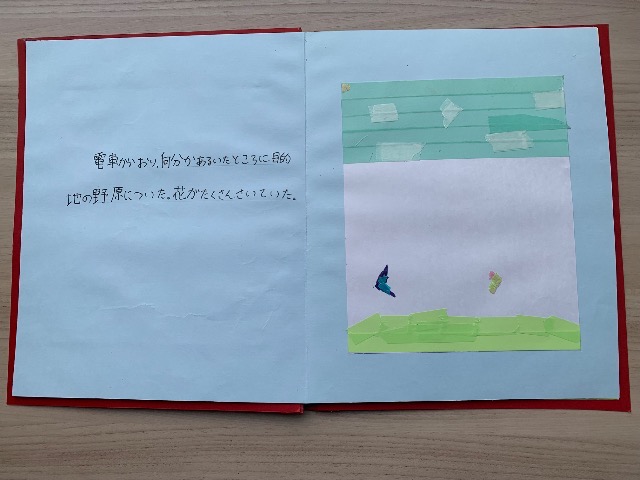 電車からおり、何分かあるいたところに、目的
地の野原についた。花がたくさんさいていた。